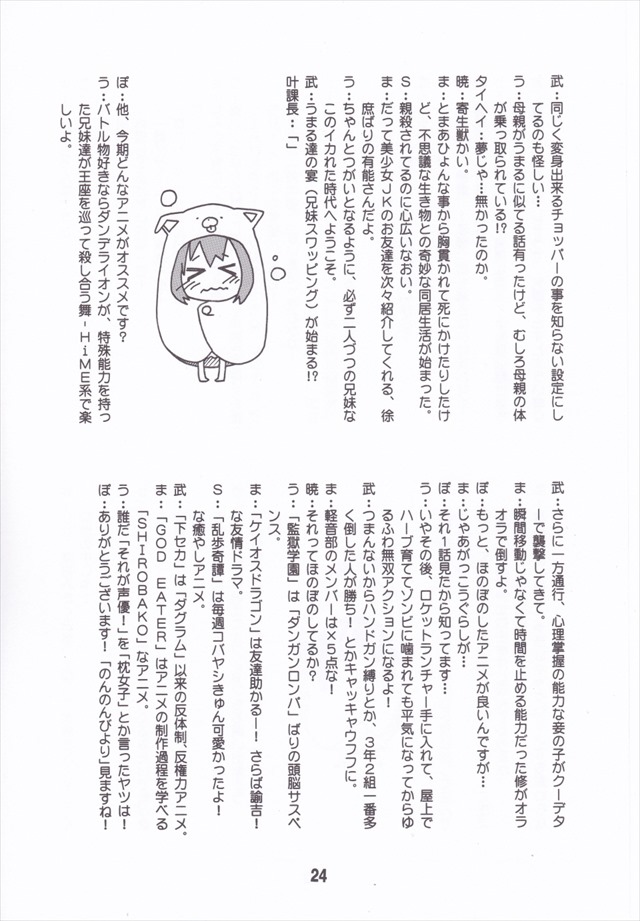 武：同じく変身出来るチョッパーの事を知らない設定にし
てるのも怪しい…
う：母親がうまるに似てる話有ったけど、むしろ母親の体
が乗っ取られている!?
タイヘイ：夢じゃ…無かったのか。
暁：寄生獣かい。
ま：とまあひょんな事から胸貫かれて死にかけたりしたけ
ど、不思議な生き物との奇妙な同居生活が始まった。
S：親殺されてるのに心広いなおい。
ま：だって美少女JKのお友達を次々紹介してくれる、徐
庶ばりの有能さんだよ。
う：ちゃんとつがいとなるように、必ず二人づつの兄妹な
このイカれた時代へようこそ。
武：うまる達の宴（兄妹スワッピング）が始まる!?
叶課長：「」
ぼ：他、今期どんなアニメがオススメです？
う：バトル物好きならダンデライオンが、特殊能力を持っ
た兄妹達が王座を巡って殺し合う舞-HiME系で楽
しいよ。
武：さらに一方通行、心理掌握の能力な妾の子がクーデタ
ーで襲撃してきて。
ま：瞬間移動じゃなくて時間を止める能力だった修がオラ
オラで倒すよ。
ぼ：もっと、ほのぼのしたアニメが良いんですが…
ま：じゃあがっこうぐらしが…
ぼ：それ1話見たから知ってます…
う：いやその後、ロケットランチャー手に入れて、屋上で
ハーブ育ててゾンビに噛まれても平気になってからゆ
るふわ無双アクションになるよ！
武：つまんないからハンドガン縛りとか、3年2組一番多
く倒した人が勝ち！とかキャッキャウフフに。
ま：軽音部のメンバーは×5点な！
暁：それってほのぼのしてるか？
う：「監獄学園」は「ダンガンロンパ」ばりの頭脳サスペ
ンス。
ま：「ケイオスドラゴン」は友達助かるー！さらば諭吉！
な友情ドラマ。
S：「乱歩奇譚」は毎週コバヤシきゅん可愛かったよ！
な癒やしアニメ。
武：「下セカ」は「ダグラム」以来の反体制、反権力アニメ。
ま：「GOD EATER」はアニメの制作過程を学べる
「SHIROBAKO」なアニメ。
う：誰だ「それが声優！」を「枕女子」とか言ったヤツは！
ぼ：ありがとうございます！「のんのんびより」見ますね！
24